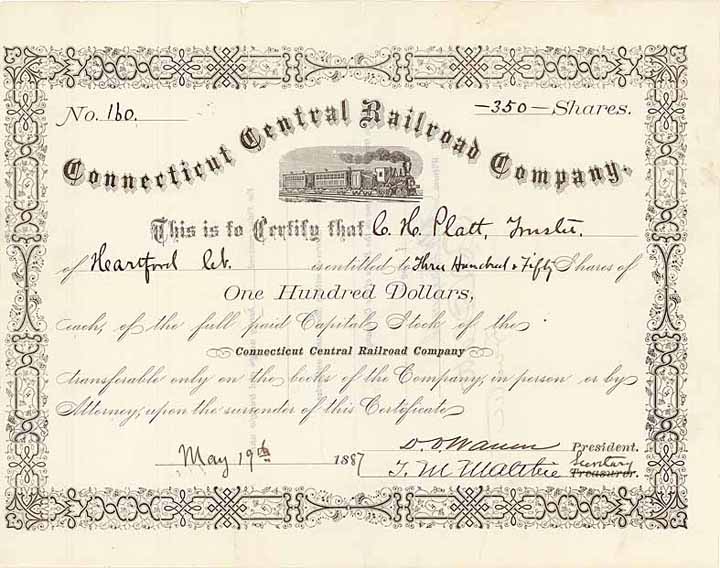 No. 160.
—350— Shares.
Connecticut Central Railroad Company.
This is to Certify that C. H. Platt, Trustee.
of Hartford Ct. is entitled to Three Hundred & Fifty Shares of
One Hundred Dollars,
each, of the full paid Capital Stock of the
Connecticut Central Railroad Company
transferable only on the books of the Company, in person or by
Attorney, upon the surrender of this Certificate
May 19th 1887
D. D. Warren President.
T. M. Maltbie Secretary Treasurer.